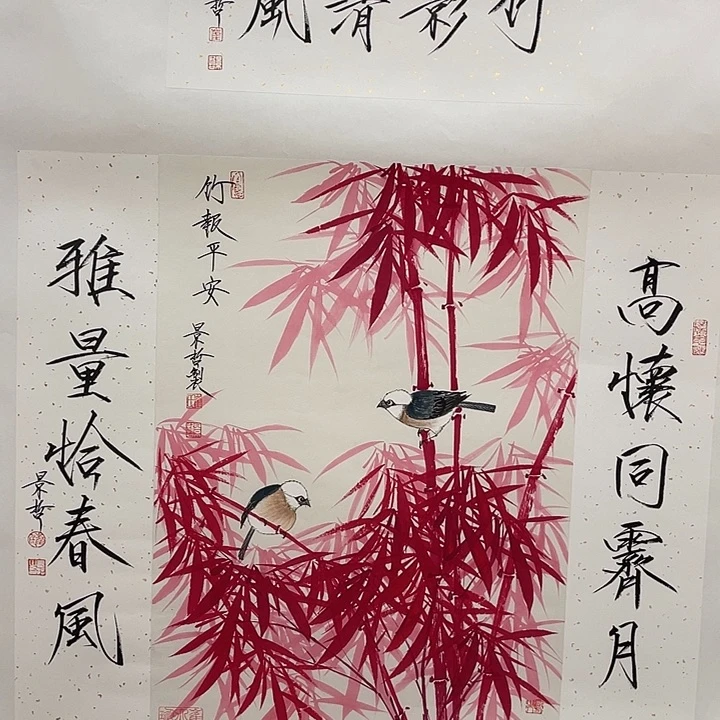 竹影清風
哲
高懷同霽月
竹報平安
景哲製
雅量恰春風
景哲